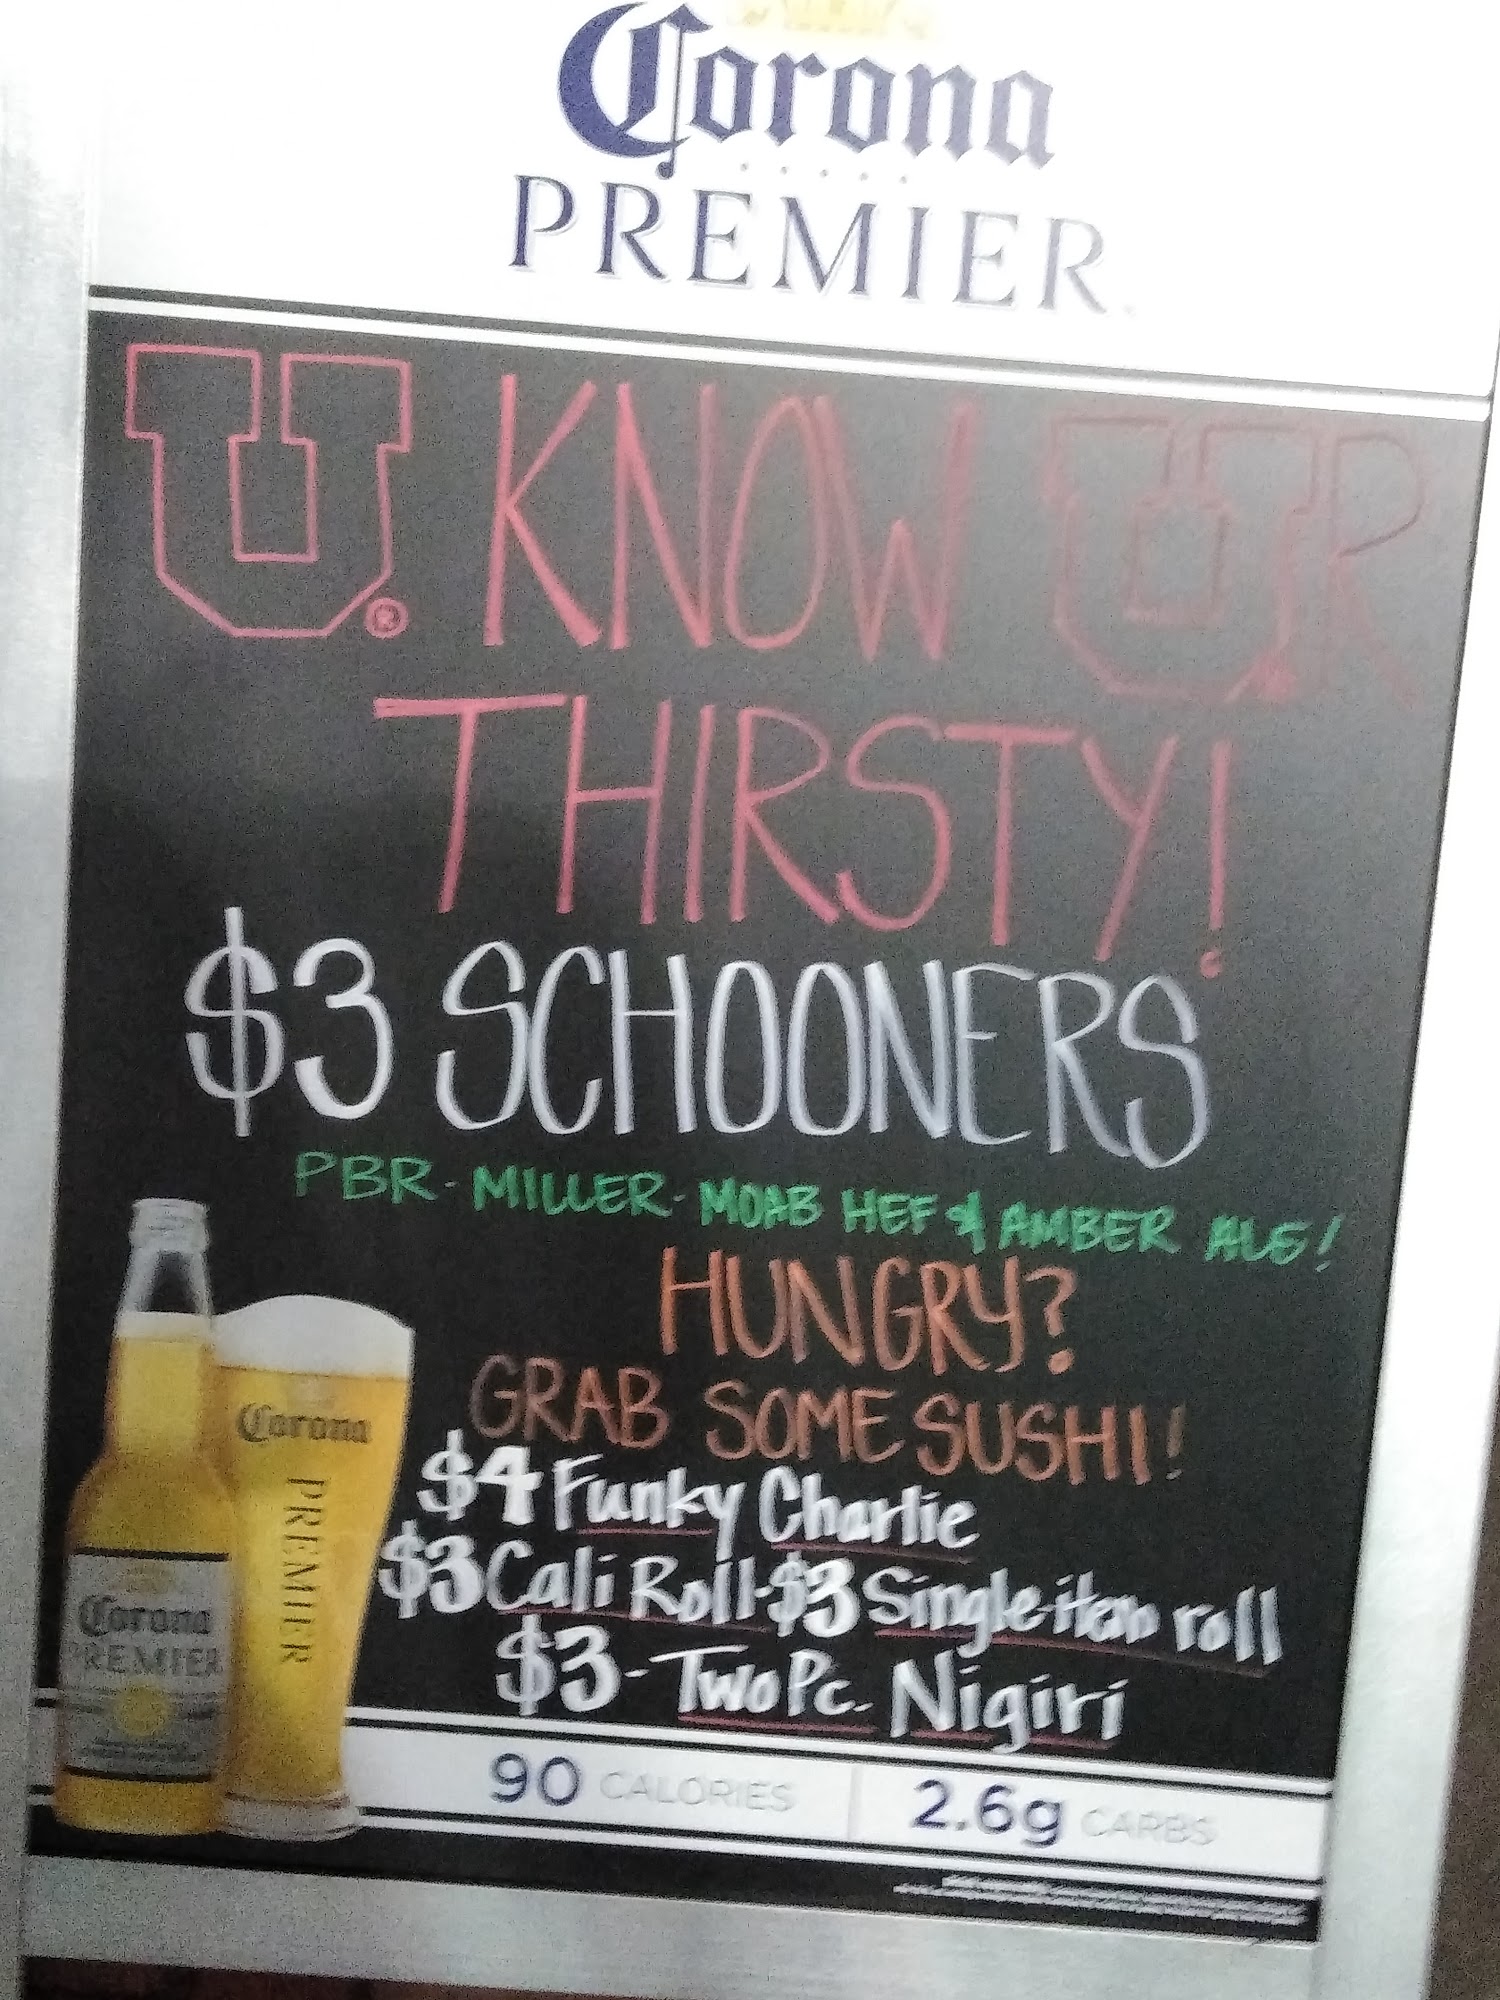 Corona
PREMIER.
U® KNOW U R
THIRSTY!
$3 SCHOONERS
PBR - MILLER - MOAB HEF & AMBER ALE!
HUNGRY?
GRAB SOME SUSHI!
$4 Funky Charlie
$3 Cali Roll - $3 Single item roll
$3 - Two Pc. Nigiri
Corona
PREMIER
Corona
PREMIER
90 CALORIES | 2.6g CARBS